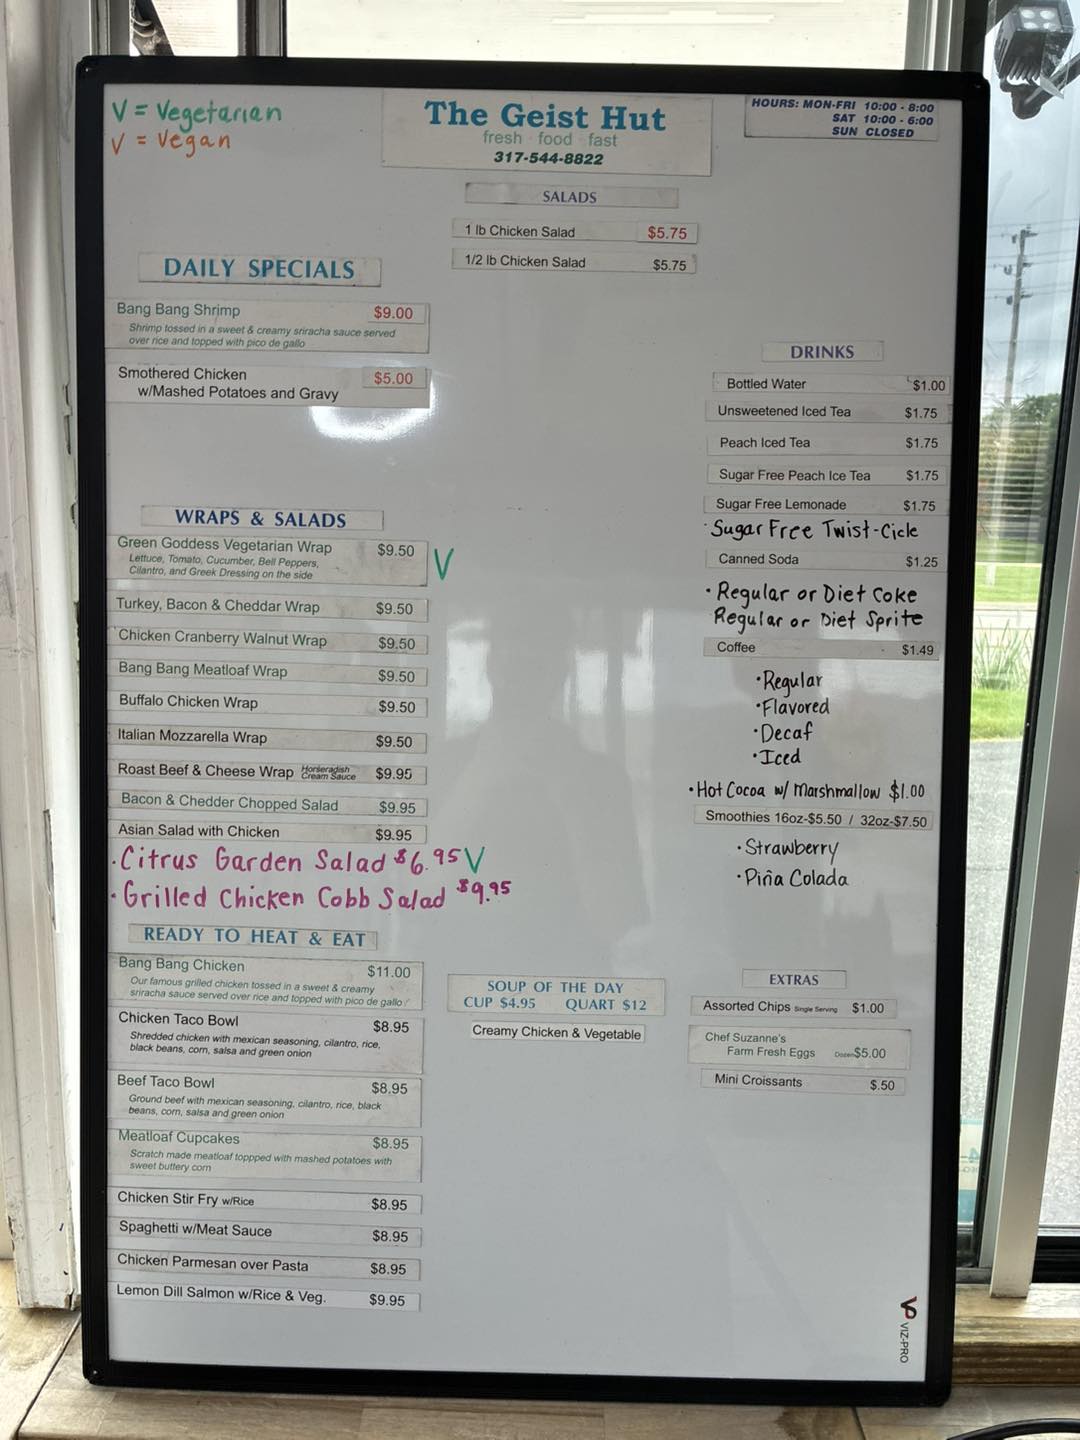 V = Vegetarian
V = Vegan
The Geist Hut
fresh food fast
317-544-8822
HOURS: MON-FRI 10:00 - 8:00
SAT 10:00 - 6:00
SUN CLOSED
SALADS
1 lb Chicken Salad $5.75
1/2 lb Chicken Salad $5.75
DAILY SPECIALS
Bang Bang Shrimp $9.00
Shrimp tossed in a sweet & creamy sriracha sauce served
over rice and topped with pico de gallo
Smothered Chicken $5.00
w/Mashed Potatoes and Gravy
WRAPS & SALADS
Green Goddess Vegetarian Wrap $9.50 V
Lettuce, Tomato, Cucumber, Bell Peppers,
Cilantro, and Greek Dressing on the side
Turkey, Bacon & Cheddar Wrap $9.50
Chicken Cranberry Walnut Wrap $9.50
Bang Bang Meatloaf Wrap $9.50
Buffalo Chicken Wrap $9.50
Italian Mozzarella Wrap $9.50
Roast Beef & Cheese Wrap Horseradish Cream Sauce $9.95
Bacon & Chedder Chopped Salad $9.95
Asian Salad with Chicken $9.95
·Citrus Garden Salad $6.95 V
·Grilled Chicken Cobb Salad $9.95
READY TO HEAT & EAT
Bang Bang Chicken $11.00
Our famous grilled chicken tossed in a sweet & creamy
sriracha sauce served over rice and topped with pico de gallo
Chicken Taco Bowl $8.95
Shredded chicken with mexican seasoning, cilantro, rice,
black beans, corn, salsa and green onion
Beef Taco Bowl $8.95
Ground beef with mexican seasoning, cilantro, rice, black
beans, corn, salsa and green onion
Meatloaf Cupcakes $8.95
Scratch made meatloaf toppped with mashed potatoes with
sweet buttery corn
Chicken Stir Fry w/Rice $8.95
Spaghetti w/Meat Sauce $8.95
Chicken Parmesan over Pasta $8.95
Lemon Dill Salmon w/Rice & Veg. $9.95
SOUP OF THE DAY
CUP $4.95 QUART $12
Creamy Chicken & Vegetable
DRINKS
Bottled Water $1.00
Unsweetened Iced Tea $1.75
Peach Iced Tea $1.75
Sugar Free Peach Ice Tea $1.75
Sugar Free Lemonade $1.75
·Sugar Free Twist-Cicle
Canned Soda $1.25
·Regular or Diet Coke
Regular or Diet Sprite
Coffee $1.49
·Regular
·Flavored
·Decaf
·Iced
·Hot Cocoa w/ Marshmallow $1.00
Smoothies 16oz-$5.50 / 32oz-$7.50
·Strawberry
·Piña Colada
EXTRAS
Assorted Chips Single Serving $1.00
Chef Suzanne's
Farm Fresh Eggs Dozen $5.00
Mini Croissants $.50
VIZ-PRO